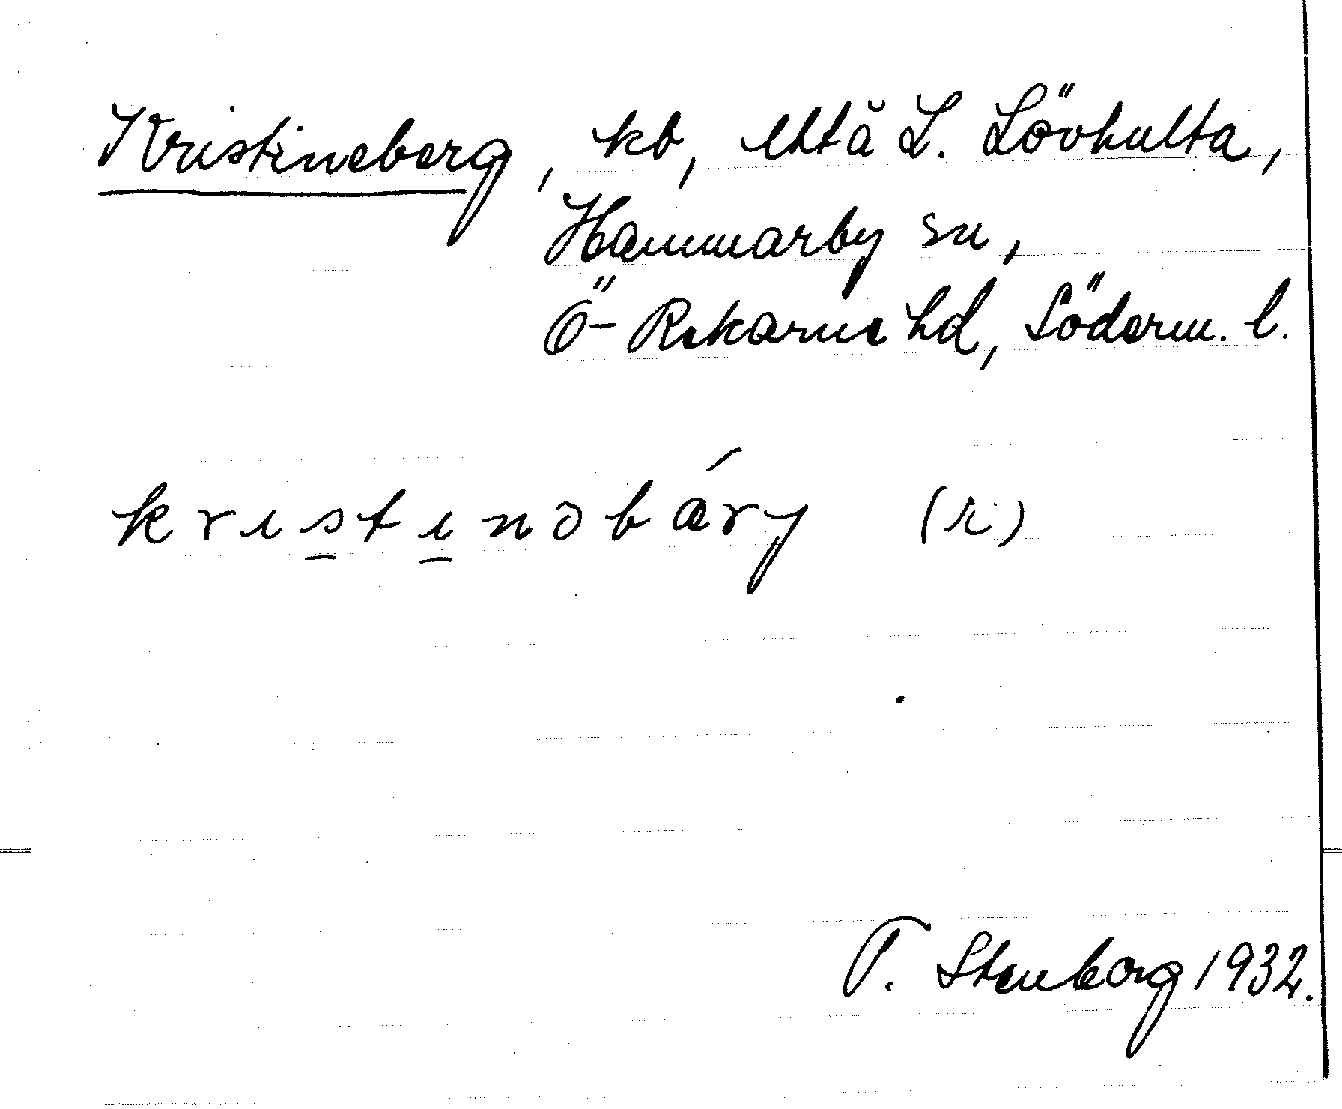 Kristineberg, kb, uttå L. Lövhulta,
Hammarby sn,
Ö-Rekarne hd, Söderm. l.
kristinəbáry (r)
T. Stenborg 1932.